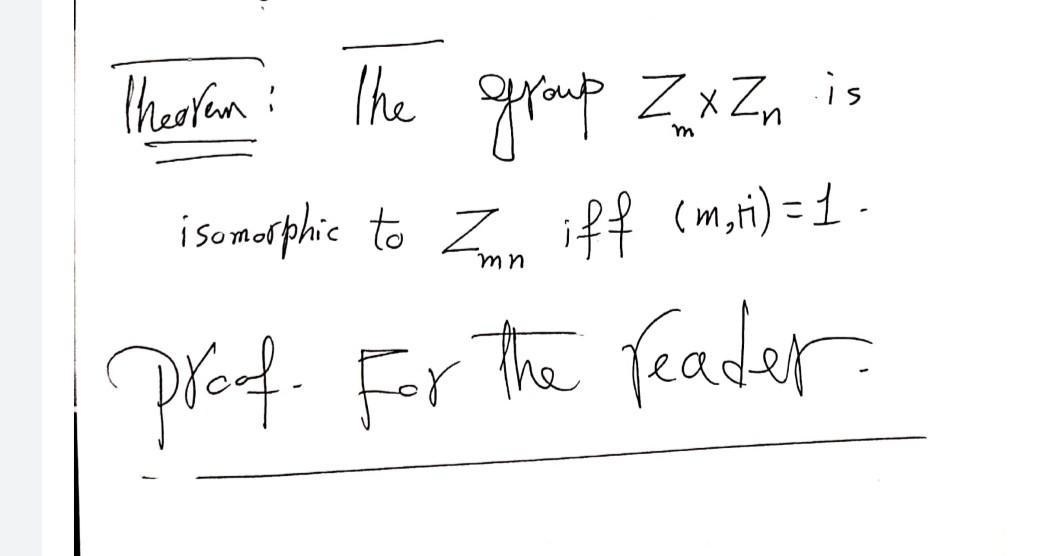 Theorem: The group Z_m x Z_n is
isomorphic to Z_mn iff (m,n)=1.
Proof. For the reader.